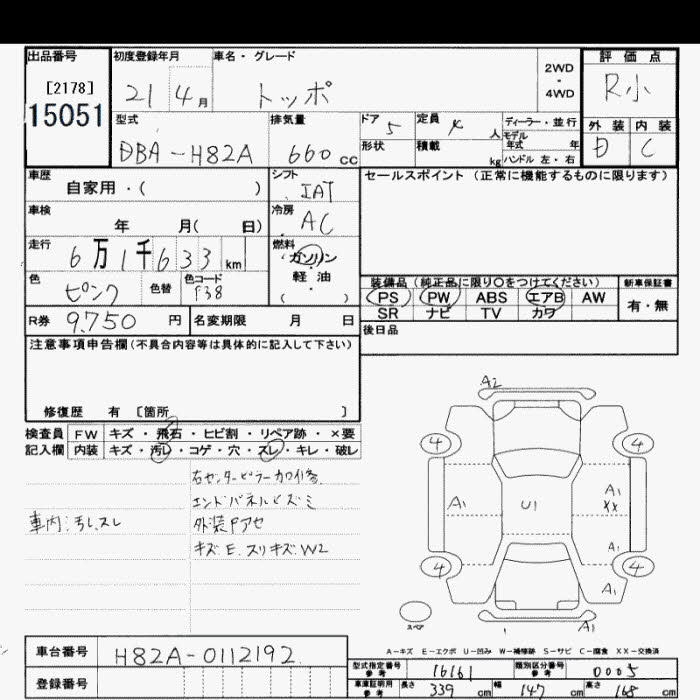 出品番号
[2178]
15051
初度登録年月
21 4月
車名・グレード
トッポ
2WD
・
4WD
評価点
R小
外装 内装
D C
型式
DBA-H82A
排気量
660 cc
ドア
5
定員
4 人
形状
積載
kg
ディーラー・並行
モデル
年式 年
ハンドル 左・右
車歴
自家用・( )
シフト
IAT
車検
年 月( 日)
冷房
AC
走行
6万1千633 km
燃料
ガソリン
軽・油
( )
色
ピンク
色替
色コード
P38
R券 9.750 円
名変期限 月 日
セールスポイント (正常に機能するものに限ります)
装備品 (純正品に限り〇をつけてください)
PS PW ABS エアB AW
SR ナビ TV カワ
新車保証書
有・無
後日品
注意事項申告欄(不具合内容等は具体的に記入して下さい)
修復歴 有 [箇所 ]
検査員
記入欄
FW キズ・飛石・ヒビ割・リペア跡・×要
内装 キズ・汚れ・コゲ・穴・スレ・キレ・破レ
右センターピラーカワイ修
エンドパネルヒズミ
車内:汚レスレ
外装Pアセ
キズE.スリキズW2
A2
4 4
A1 U1 A1
XX
A1
4 4
A1
スペア
A1
A-キズ E-エクボ U-凹み W-補修跡 S-サビ C-腐食 XX-交換済
車台番号 H82A-0112192
登録番号
型式指定番号
参考
16161
類別区分番号
参考
0005
車庫証明用
参考
長さ 339 cm 幅 147 cm 高さ 168 cm